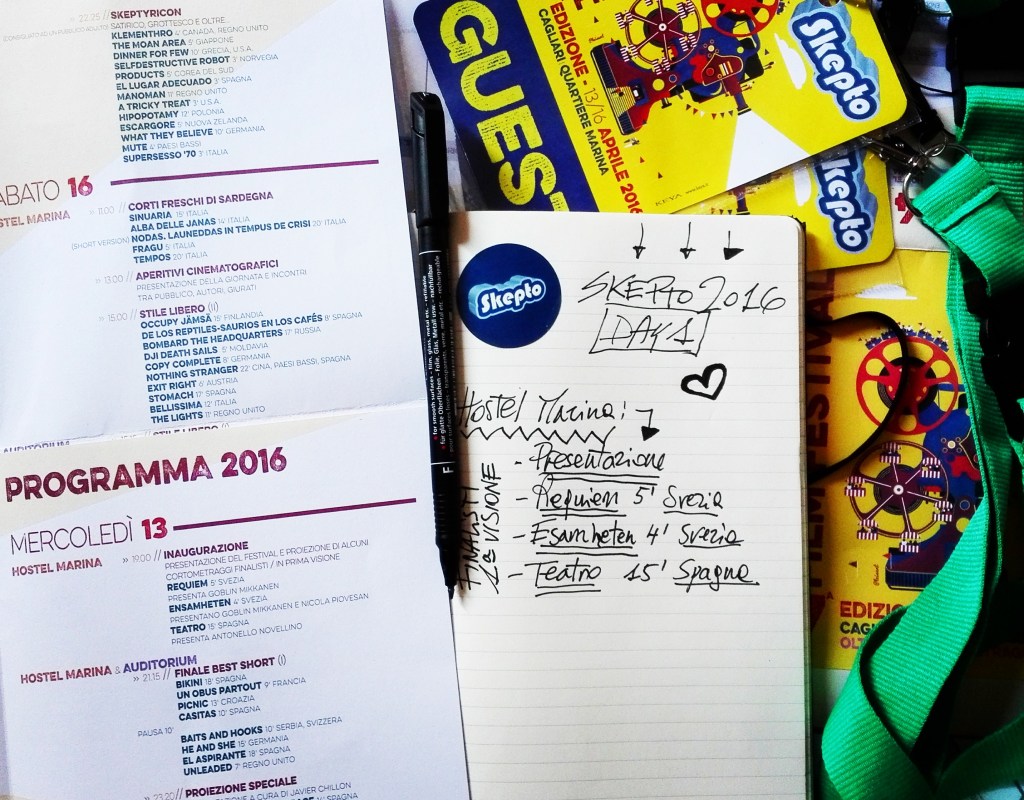 22.25 // SKEPTYRICON
SATIRICO, GROTTESCO E OLTRE...
KLEMENTHRO 4' CANADA, REGNO UNITO
THE MOAN AREA 5' GIAPPONE
DINNER FOR FEW 10' GRECIA, U.S.A.
SELFDESTRUCTIVE ROBOT 3' NORVEGIA
PRODUCTS 5' COREA DEL SUD
EL LUGAR ADECUADO 3' SPAGNA
MANOMAN 11' REGNO UNITO
A TRICKY TREAT 3' U.S.A.
HIPOPOTAMY 12' POLONIA
ESCARGORE 5' NUOVA ZELANDA
WHAT THEY BELIEVE 10' GERMANIA
MUTE 4' PAESI BASSI
SUPERSESSO '70 3' ITALIA
ABATO 16
OSTEL MARINA
11.00 // CORTI FRESCHI DI SARDEGNA
SINUARIA 15' ITALIA
ALBA DELLE JANAS 14' ITALIA
(SHORT VERSION) NODAS. LAUNEDDAS IN TEMPUS DE CRISI 20' ITALIA
FRAGU 5' ITALIA
TEMPOS 20' ITALIA
13.00 // APERITIVI CINEMATOGRAFICI
PRESENTAZIONE DELLA GIORNATA E INCONTRI
TRA PUBBLICO, AUTORI, GIURATI
15.00 // STILE LIBERO (II)
OCCUPY JÄMSÄ 15' FINLANDIA
DE LOS REPTILES-SAURIOS EN LOS CAFÉS 8' SPAGNA
BOMBARD THE HEADQUARTERS 17' RUSSIA
DJI DEATH SAILS 5' MOLDAVIA
COPY COMPLETE 8' GERMANIA
NOTHING STRANGER 22' CINA, PAESI BASSI, SPAGNA
EXIT RIGHT 6' AUSTRIA
STOMACH 17' SPAGNA
BELLISSIMA 12' ITALIA
THE LIGHTS 11' REGNO UNITO
AUDITORIUM
STILE LIBERO
PROGRAMMA 2016
MERCOLEDÌ 13
HOSTEL MARINA
» 19.00 // INAUGURAZIONE
PRESENTAZIONE DEL FESTIVAL E PROIEZIONE DI ALCUNI
CORTOMETRAGGI FINALISTI / IN PRIMA VISIONE
REQUIEM 5' SVEZIA
PRESENTA GOBLIN MIKKANEN
ENSAMHETEN 4' SVEZIA
PRESENTANO GOBLIN MIKKANEN E NICOLA PIOVESAN
TEATRO 15' SPAGNA
PRESENTA ANTONELLO NOVELLINO
HOSTEL MARINA & AUDITORIUM
» 21.15 // FINALE BEST SHORT (I)
BIKINI 18' SPAGNA
UN OBUS PARTOUT 9' FRANCIA
PICNIC 13' CROAZIA
CASITAS 10' SPAGNA
PAUSA 10'
BAITS AND HOOKS 10' SERBIA, SVIZZERA
HE AND SHE 15' GERMANIA
EL ASPIRANTE 18' SPAGNA
UNLEADED 7' REGNO UNITO
» 23.20 // PROIEZIONE SPECIALE
A CURA DI JAVIER CHILLON
GUEST
EDIZIONE - 13/16 APRILE 2016
CAGLIARI QUARTIERE MARINA
Skepto
Skepto
Skepto
SKEPTO 2016
DAY 1
Hostel Marina:
- Presentazione
- Requiem 5' Svezia
- Esamheten 4' Svezia
- Teatro 15' Spagna
FINALISTI
1ª VISIONE
for smooth surfaces - film, glass, metal etc.
für glatte Oberflächen - Folie, Glas, Metall usw. - nachfüllbar
F
FILM FESTIVAL
EDIZIO
CAG
OLT